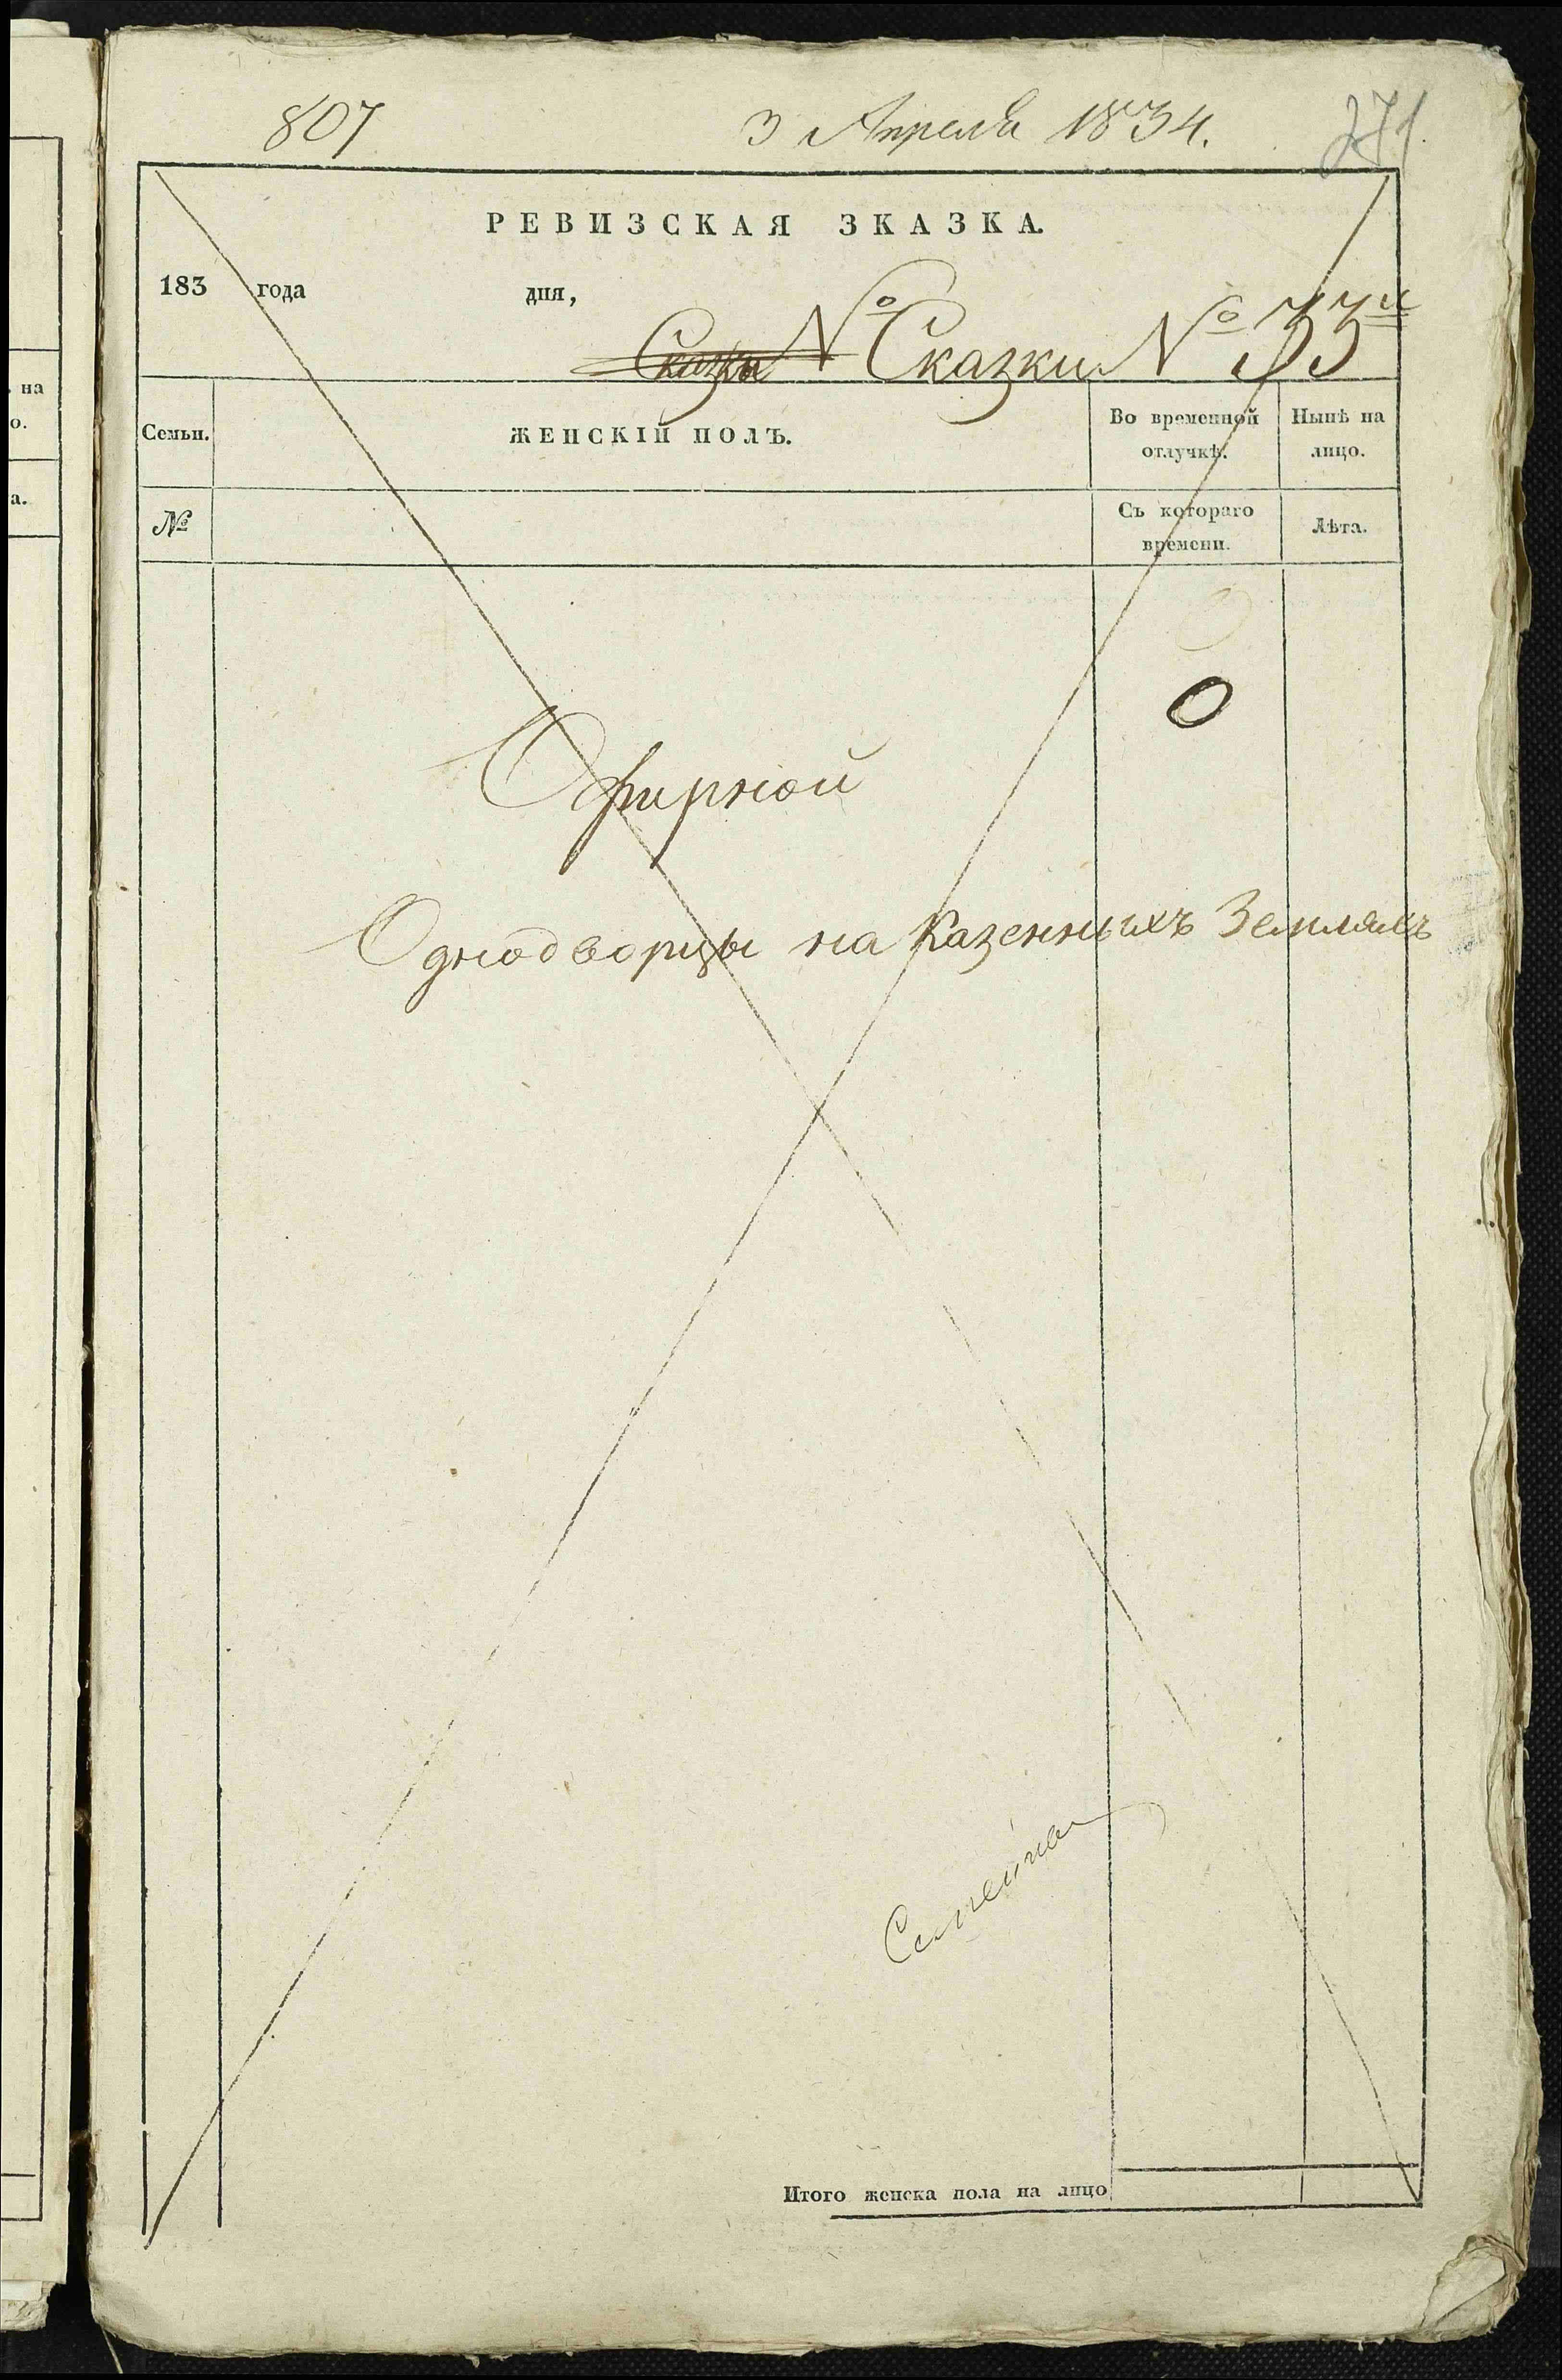 807 3 Апреля 1834. 271
РЕВИЗСКАЯ ЗКАЗКА.
183 года дня,
Сказки № Сказки № 33й
Семьи. ЖЕНСКІЙ ПОЛЪ. Во временной отлучкѣ. Нынѣ на лицо.
№ Съ котораго времени. Лѣта.
0
Офирной
Однодворцы на Казенныхъ Земляхъ
Итого женска пола на лицо
на
о.
а.